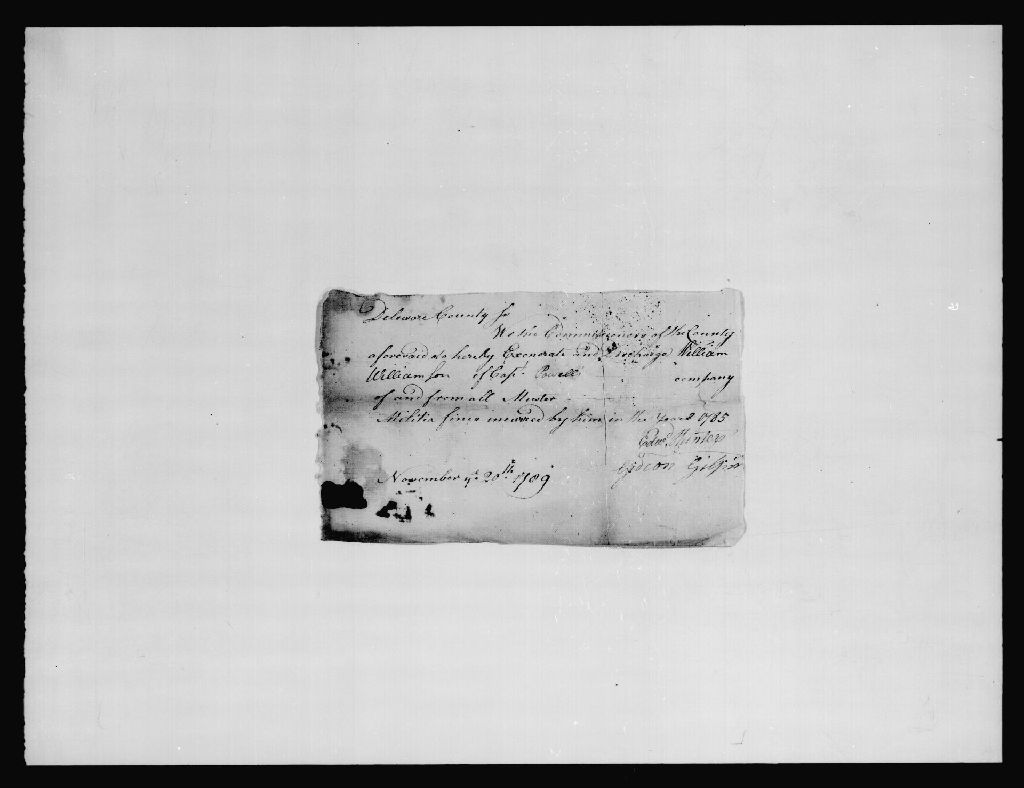 Delewore County ss
We the Commissioners of the County
aforesaid do hereby Exonerate and Discharge William
Williamson of Capt. Powell company
of and from all Muster
Militia fines incurred by him in the Year 1785
Edwd. Hunter
Gideon Gilpin
November ye 20th 1789